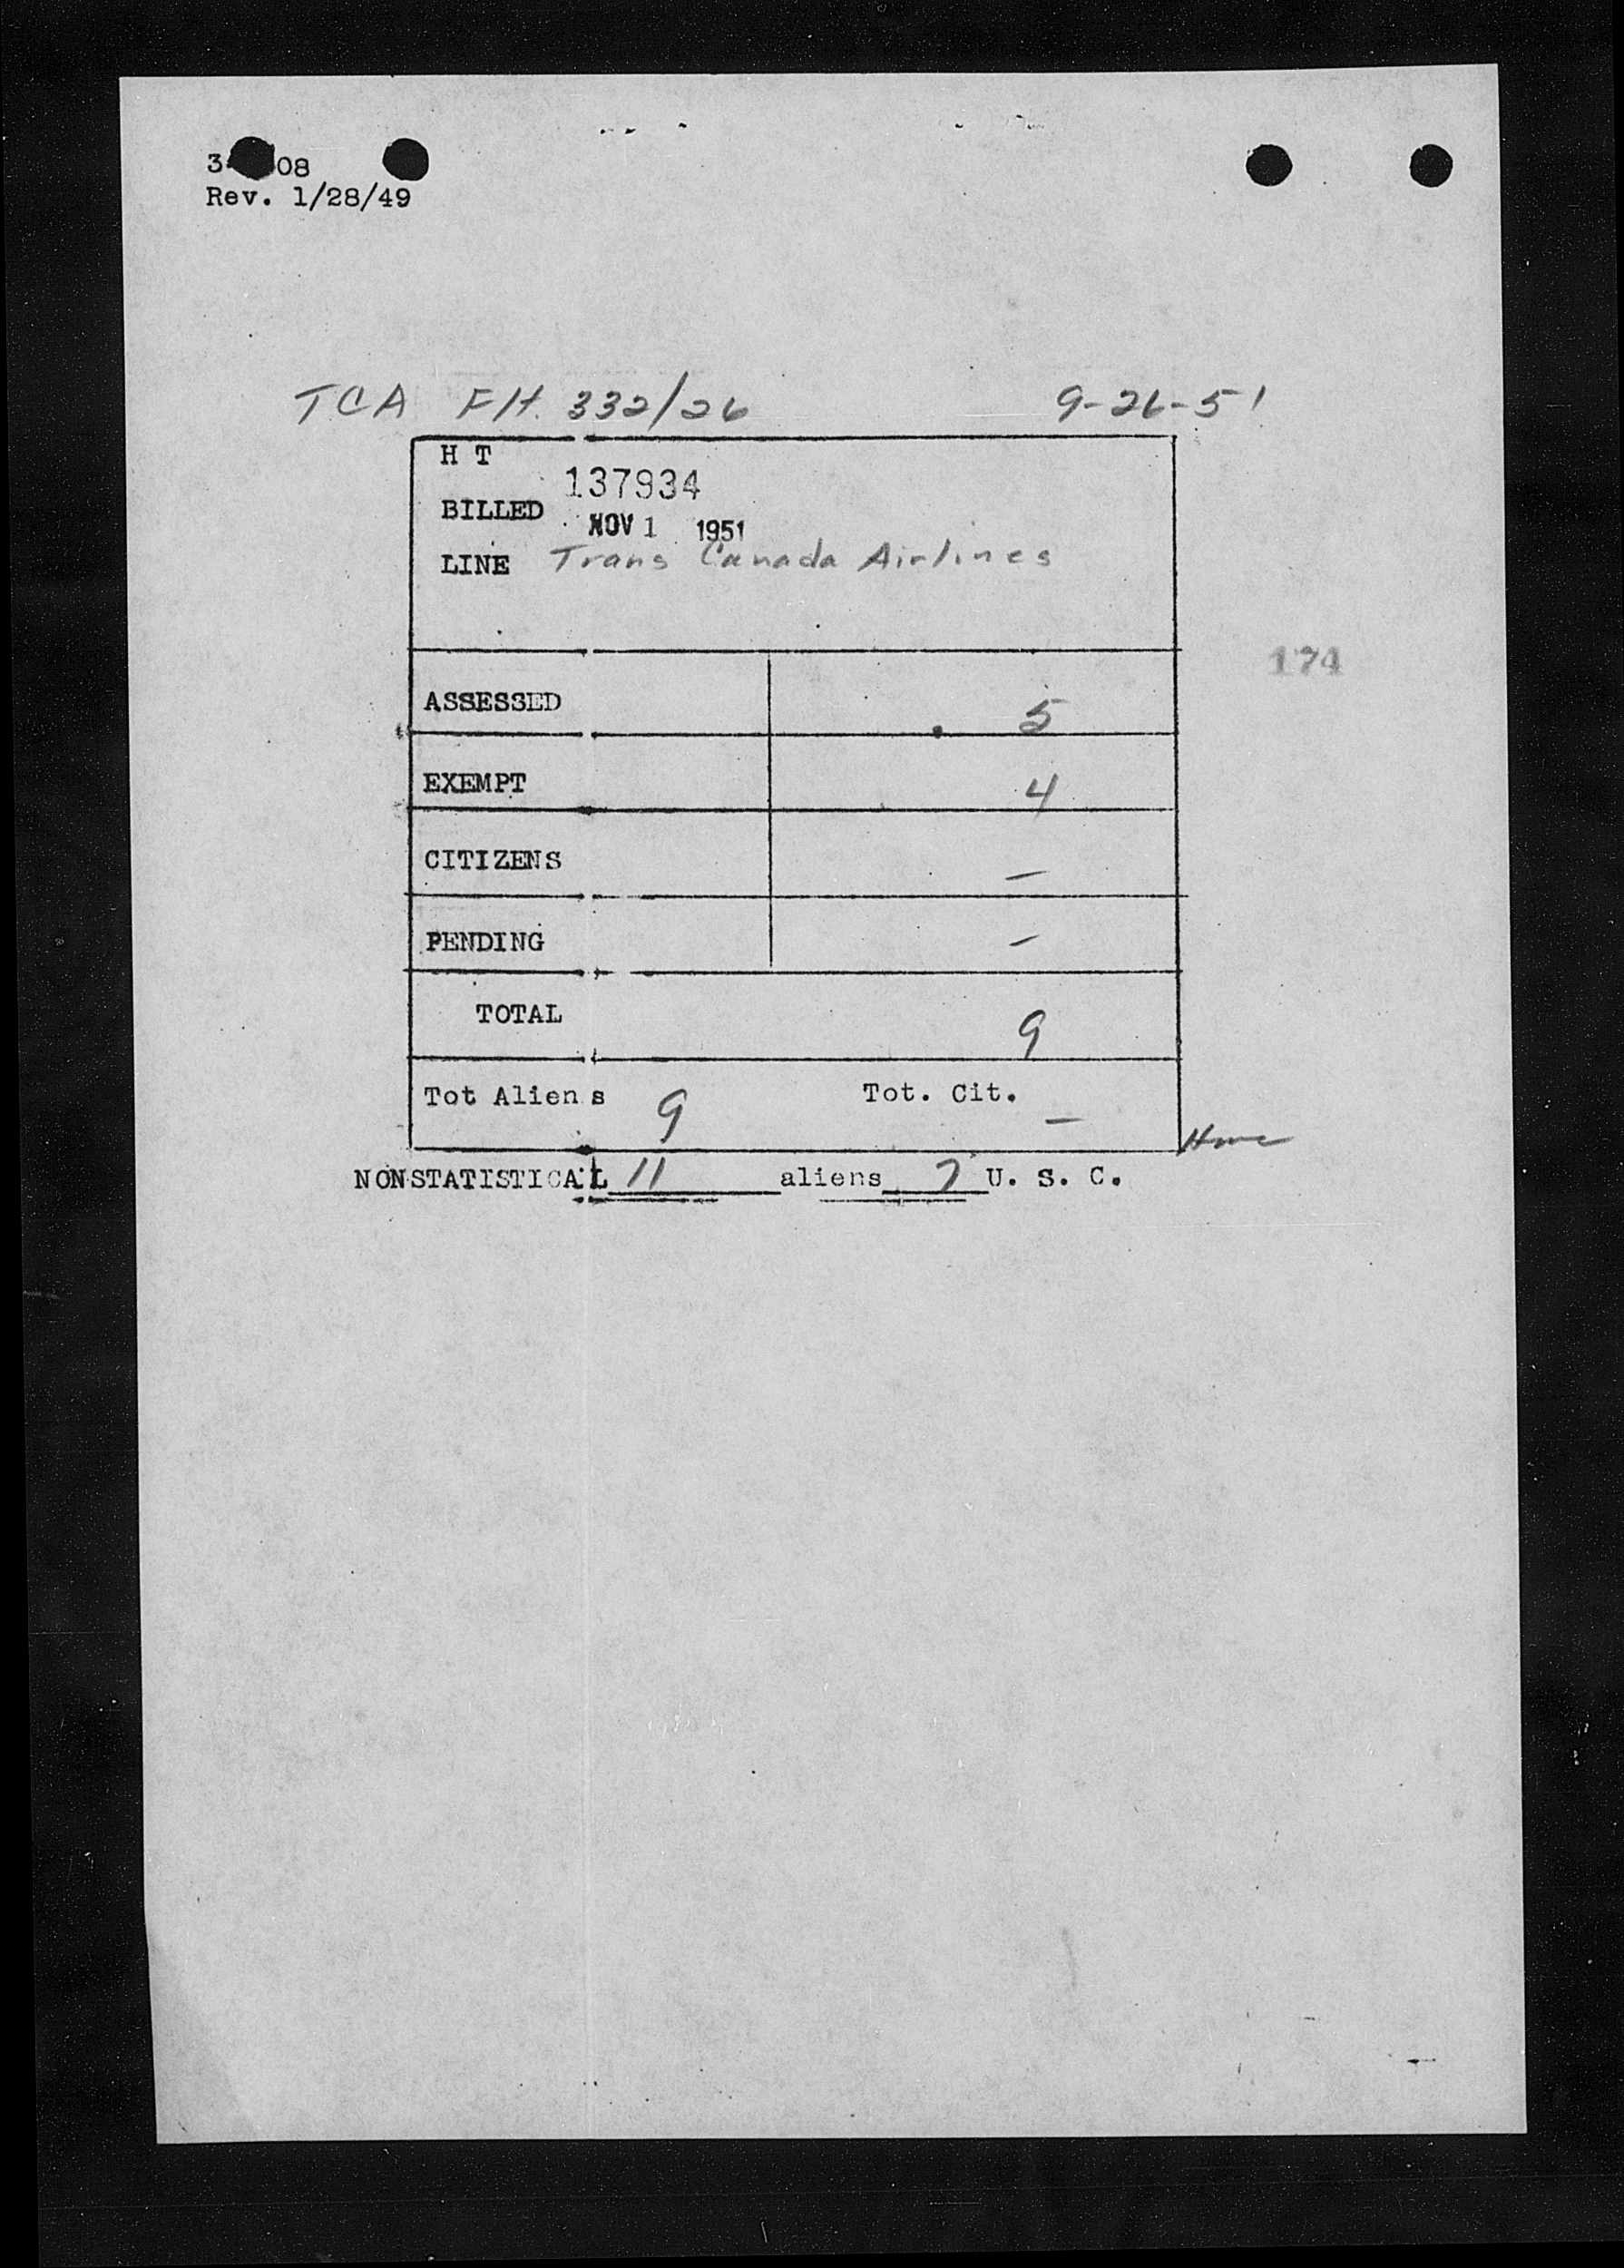 08
Rev. 1/28/49
TCA Flt. 332/26 9-26-51
H T
137934
BILLED NOV 1 1951
LINE Trans Canada Airlines
174
ASSESSED 5
EXEMPT 4
CITIZENS –
PENDING –
TOTAL 9
Tot Aliens 9 Tot. Cit. –
NONSTATISTICAL 11 aliens 7 U. S. C.